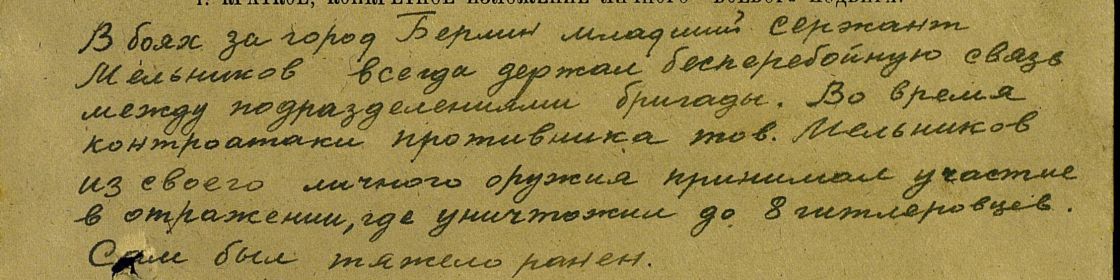 1. КРАТКОЕ, КОНКРЕТНОЕ ИЗЛОЖЕНИЕ ЛИЧНОГО БОЕВОГО ПОДВИГА.
В боях за город Берлин младший сержант
Мельников всегда держал бесперебойную связь
между подразделениями бригады. Во время
контроатаки противника тов. Мельников
из своего личного оружия принимал участие
в отражении, где уничтожил до 8 гитлеровцев.
Сам был тяжело ранен.